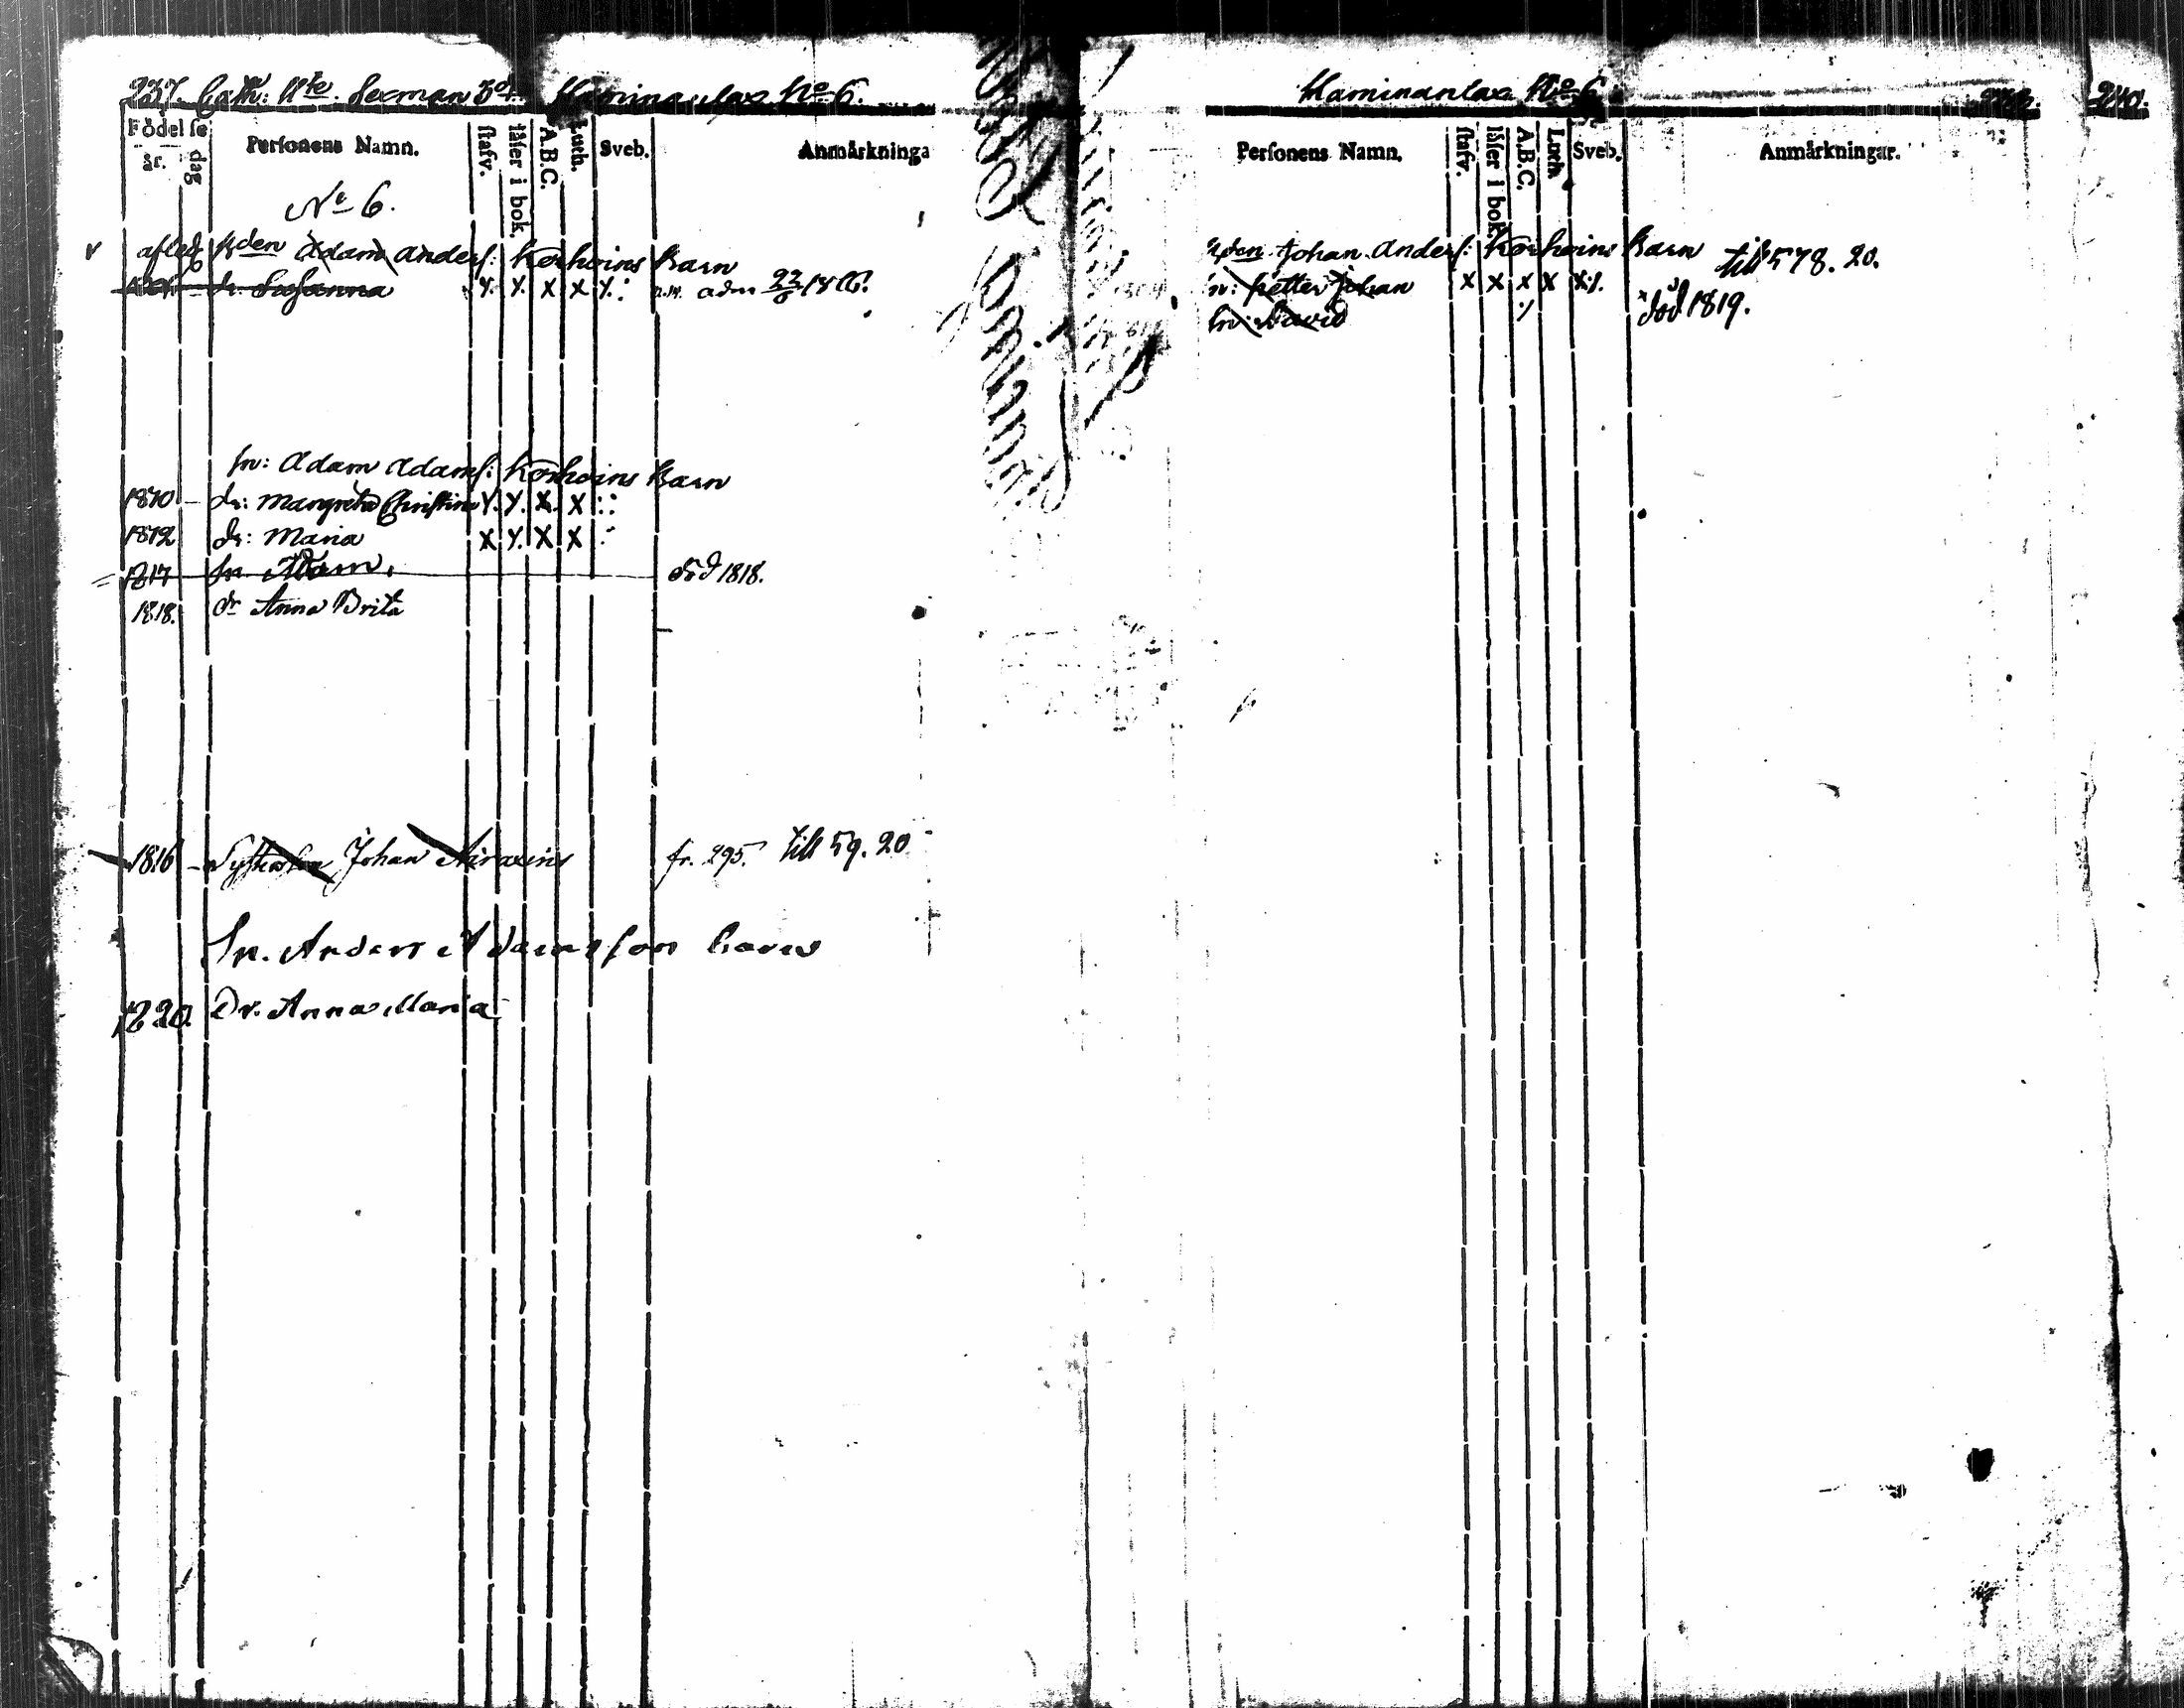 237. Cath: Ute. Sexman 3dt. Haminanlax No 6.
Födelse
år. dag
Personens Namn.
stafv.
läser i bok.
A.B.C.
Luth.
Sveb.
Anmärkninga
No 6.
afled. Bden Adam Anders: Korhoins Barn
dr. Susanna x x x x x: adm 22/6 1816.
sn: Adam Adams: Korhoins Barn
1810 - dr: Margreta Christina x. x. x. x ::
1812 dr: Maria x x. x x :
1817 sn. Adam. död 1818.
1818. dr Anna Brita
1816 - Johan fr. 295. till 59. 20
Sn. Anders Adamsson barn
1820. Dr. Anna Maria
Haminanlax No 6
240.
Personens Namn.
stafv.
läser i bok.
A.B.C.
Luth
Sveb.
Anmärkningar.
Bden Johan Anders: Korhoins Barn till 578. 20.
sn: Petter Johan x x x x x/.
sn: David ./ död 1819.